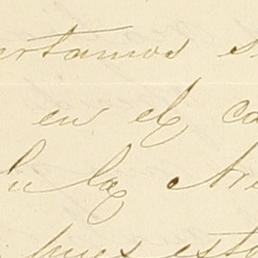 ertamos s
en el ca
la Are
pues esto